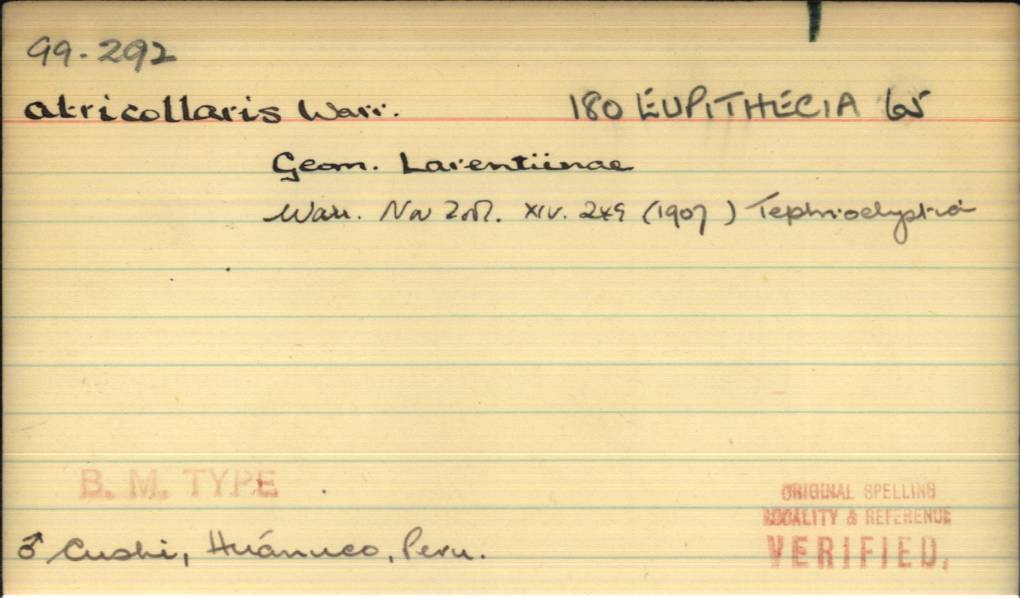 99-292
atricollaris Warr. 180 EUPITHECIA
Geom. Larentiinae
Warr. Nov Zool. XIV. 249 (1907) Tephroclystia
B. M. TYPE
♂ Cushi, Huánuco, Peru.
ORIGINAL SPELLING
LOCALITY & REFERENCE
VERIFIED.